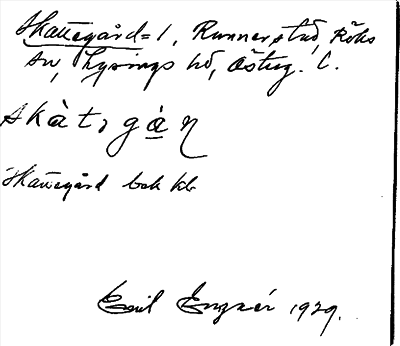 Skattegård = 1, Runnerstad, Röks
sn, Lysings hd, Östug. L.
skàt, gá̱ɳ
Skattegård bok kb
Emil Enznér 1929.